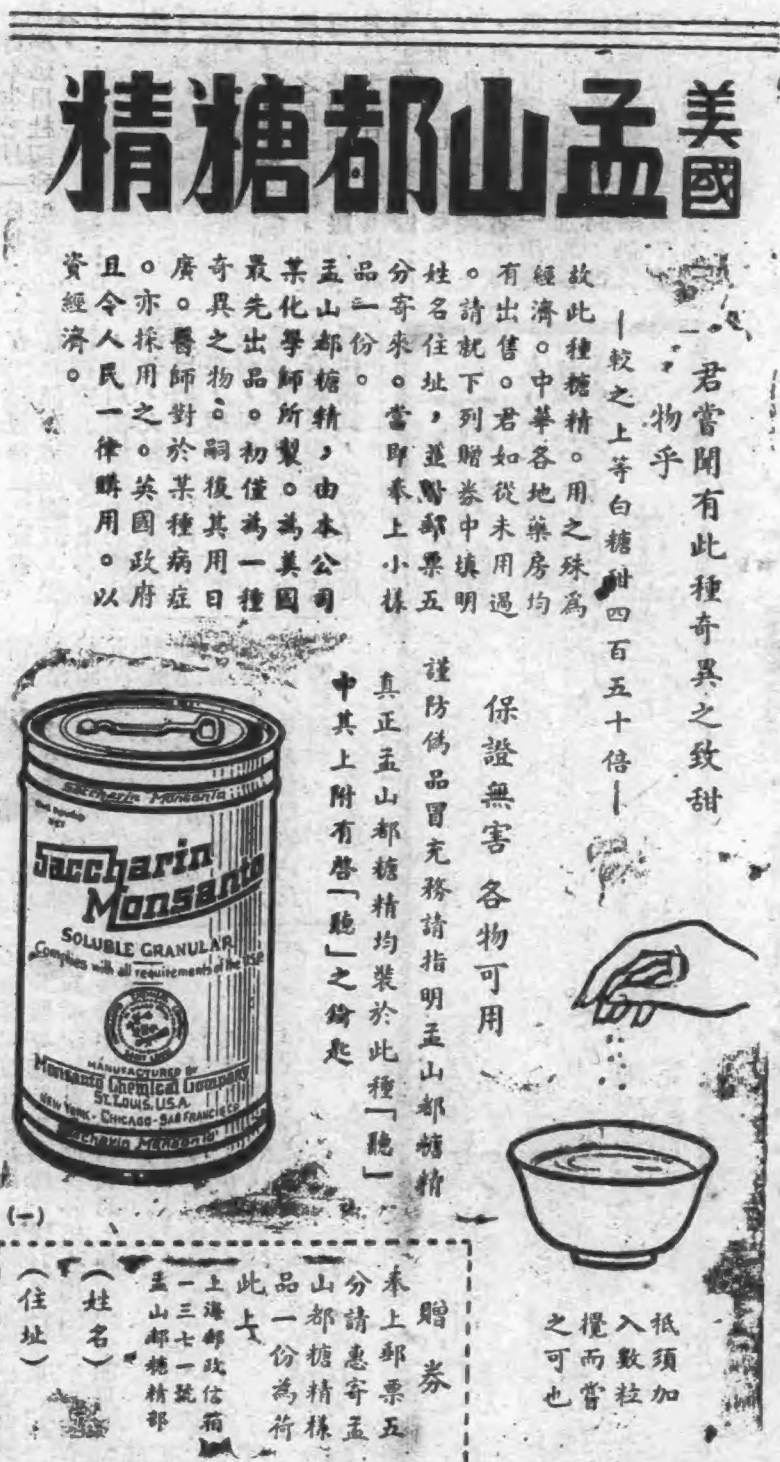 美國
孟山都糖精
君嘗聞有此種奇異之致甜
物乎
—較之上等白糖甜四百五十倍—
故此種糖精。用之殊為
經濟。中華各地藥房均
有出售。君如從未用過
。請就下列贈券中填明
姓名住址，並附郵票五
分寄來。當即奉上小樣
品一份。
孟山都糖精，由本公司
某化學師所製。為美國
最先出品。初僅為一種
奇異之物。嗣後其用日
廣。醫師對於某種病症
。亦採用之。英國政府
且令人民一律購用。以
資經濟。
保證無害 各物可用
謹防偽品冒充務請指明孟山都糖精
真正孟山都糖精均裝於此種「聽」
中其上附有啓「聽」之鑰匙
Saccharin Monsanto
ONE POUND
NET
Saccharin
Monsanto
SOLUBLE GRANULAR
Complies with all requirements of the U.S.P.
MANUFACTURED BY
Monsanto Chemical Company
ST. LOUIS, U.S.A.
NEW YORK - CHICAGO - SAN FRANCISCO
Saccharin Monsanto
祇須加
入數粒
攪而嘗
之可也
(一)
贈券
奉上郵票五
分請惠寄孟
山都糖精樣
品一份為荷
此上
上海郵政信箱
一三七一號
孟山都糖精部
(姓名)
(住址)